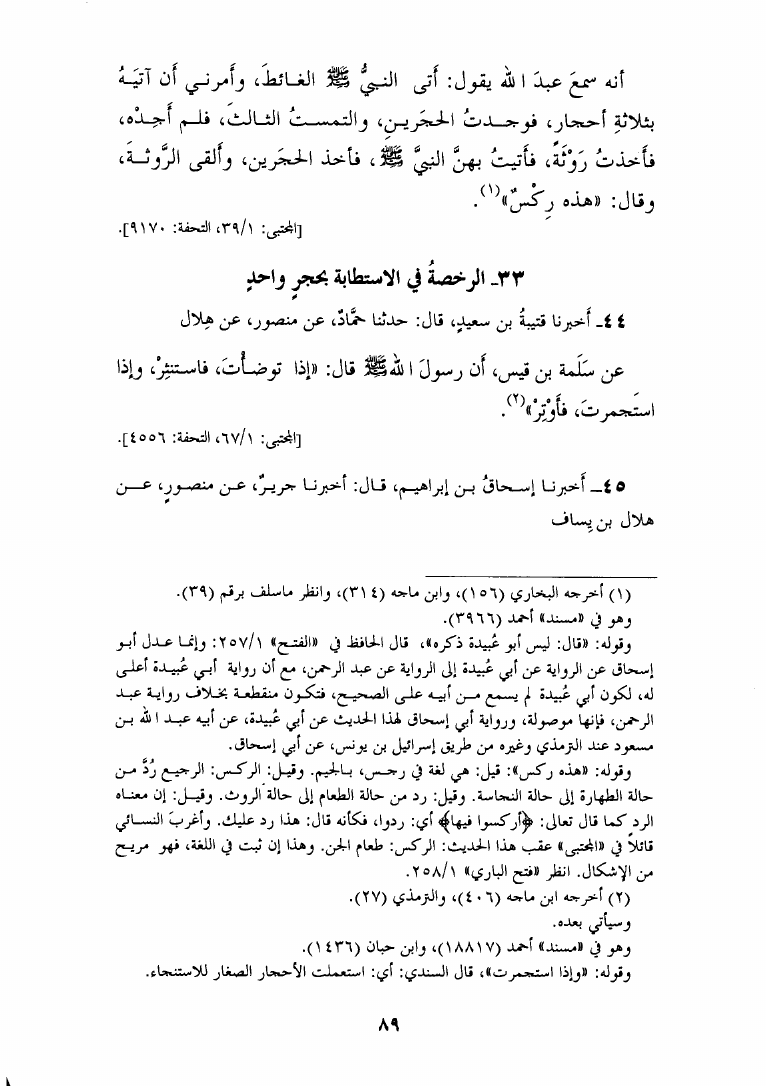 أنه سمعَ عبدَ الله يقول: أَتى النبيُّ ﷺ الغائطَ، وأَمرني أن آتيَهُ
بثلاثةِ أحجار، فوجدتُ الحجَرينِ، والتمستُ الثالثَ، فلم أَجِدْه،
فأَخذتُ رَوْثَةً، فأَتيتُ بهنَّ النبيَّ ﷺ، فأخذ الحجَرين، وألقى الرَّوثةَ،
وقال: «هذه رِكْسٌ»(١).
[المجتبى: ٣٩/١، التحفة: ٩١٧٠].
٣٣ـ الرخصةُ في الاستطابة بحجرٍ واحدٍ
٤٤ـ أَخبرنا قتيبةُ بن سعيدٍ، قال: حدثنا حمَّادٌ، عن منصور، عن هِلال
عن سَلَمة بن قيس، أن رسولَ الله ﷺ قال: «إذا توضأْتَ، فاستنثِرْ، وإذا
استَجمرتَ، فأَوْتِرْ»(٢).
[المجتبى: ٦٧/١، التحفة: ٤٥٥٦].
٤٥ـ أَخبرنا إسحاقُ بن إبراهيم، قال: أخبرنا جريرٌ، عن منصورٍ، عن
هلال بن يِساف
(١) أخرجه البخاري (١٥٦)، وابن ماجه (٣١٤)، وانظر ماسلف برقم (٣٩).
وهو في «مسند» أحمد (٣٩٦٦).
وقوله: «قال: ليس أبو عُبيدة ذكره»، قال الحافظ في «الفتح» ٢٥٧/١: وإنما عدل أبو
إسحاق عن الرواية عن أبي عُبيدة إلى الرواية عن عبد الرحمن، مع أن رواية أبي عُبيدة أعلى
له، لكون أبي عُبيدة لم يسمع من أبيه على الصحيح، فتكون منقطعة بخلاف رواية عبد
الرحمن، فإنها موصولة، ورواية أبي إسحاق لهذا الحديث عن أبي عُبيدة، عن أبيه عبد الله بن
مسعود عند الترمذي وغيره من طريق إسرائيل بن يونس، عن أبي إسحاق.
وقوله: «هذه ركس»: قيل: هي لغة في رجس، بالجيم. وقيل: الركس: الرجيع رُدَّ من
حالة الطهارة إلى حالة النجاسة. وقيل: رد من حالة الطعام إلى حالة الروث. وقيل: إن معناه
الرد كما قال تعالى: ﴿أركسوا فيها﴾ أي: ردوا، فكأنه قال: هذا رد عليك. وأغربَ النسائي
قائلاً في «المجتبى» عقب هذا الحديث: الركس: طعام الجن. وهذا إن ثبت في اللغة، فهو مريح
من الإشكال. انظر «فتح الباري» ٢٥٨/١.
(٢) أخرجه ابن ماجه (٤٠٦)، والترمذي (٢٧).
وسيأتي بعده.
وهو في «مسند» أحمد (١٨٨١٧)، وابن حبان (١٤٣٦).
وقوله: «وإذا استجمرت»، قال السندي: أي: استعملت الأحجار الصغار للاستنجاء.
٨٩